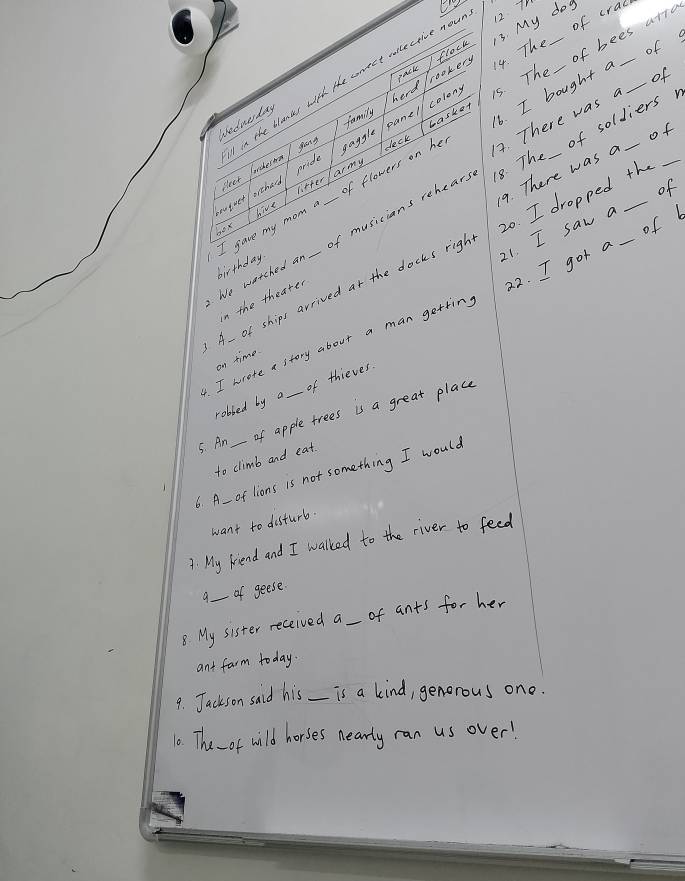 Wednesday
Fill in the blanks with the correct collective nouns
fleet orchestra gang family pack flock
bouquet orchard pride gaggle herd rookery
box hive litter army panel colony
deck basket
1. I gave my mom a _ of flowers on her
birthday.
2. We watched an _ of musicians rehearse
in the theater.
3. A _ of ships arrived at the docks right
on time.
4. I wrote a story about a man getting
robbed by a _ of thieves.
5. An _ of apple trees is a great place
to climb and eat.
6. A _ of lions is not something I would
want to disturb.
7. My friend and I walked to the river to feed
a _ of geese.
8. My sister received a _ of ants for her
ant farm today.
9. Jackson said his _ is a kind, generous one.
10. The _ of wild horses nearly ran us over!
12.
13. My dog
14. The _ of
15. The _ of bees
16. I bought a _ of
17. There was a _ of
18. The _ of soldiers
19. There was a _ of
20. I dropped the _
21. I saw a _ of
22. I got a _ of